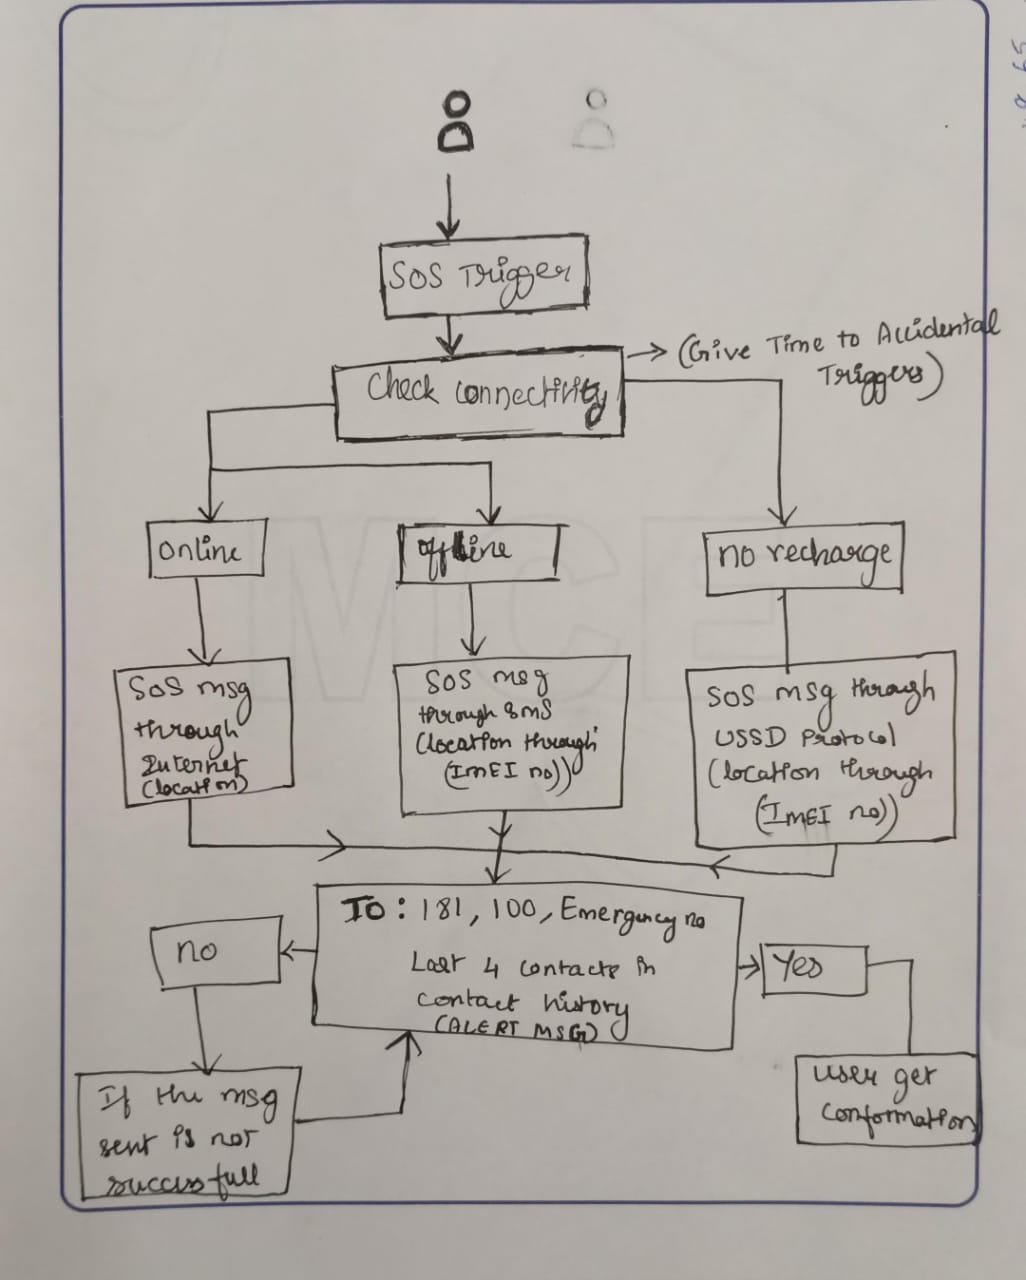 Do
Do
SOS Trigger
Check connectivity
(Give Time to Accidental
Triggers)
online
offline
no recharge
SOS msg
through
Internet
(location)
SOS msg
through SMS
(location through
(IMEI no))
SOS msg through
USSD Protocol
(location through
(IMEI no))
TO: 181, 100, Emergency no
Last 4 contacts in
contact history
(ALERT MSG)
no
Yes
If the msg
sent is not
successfull
user get
conformation
MCE